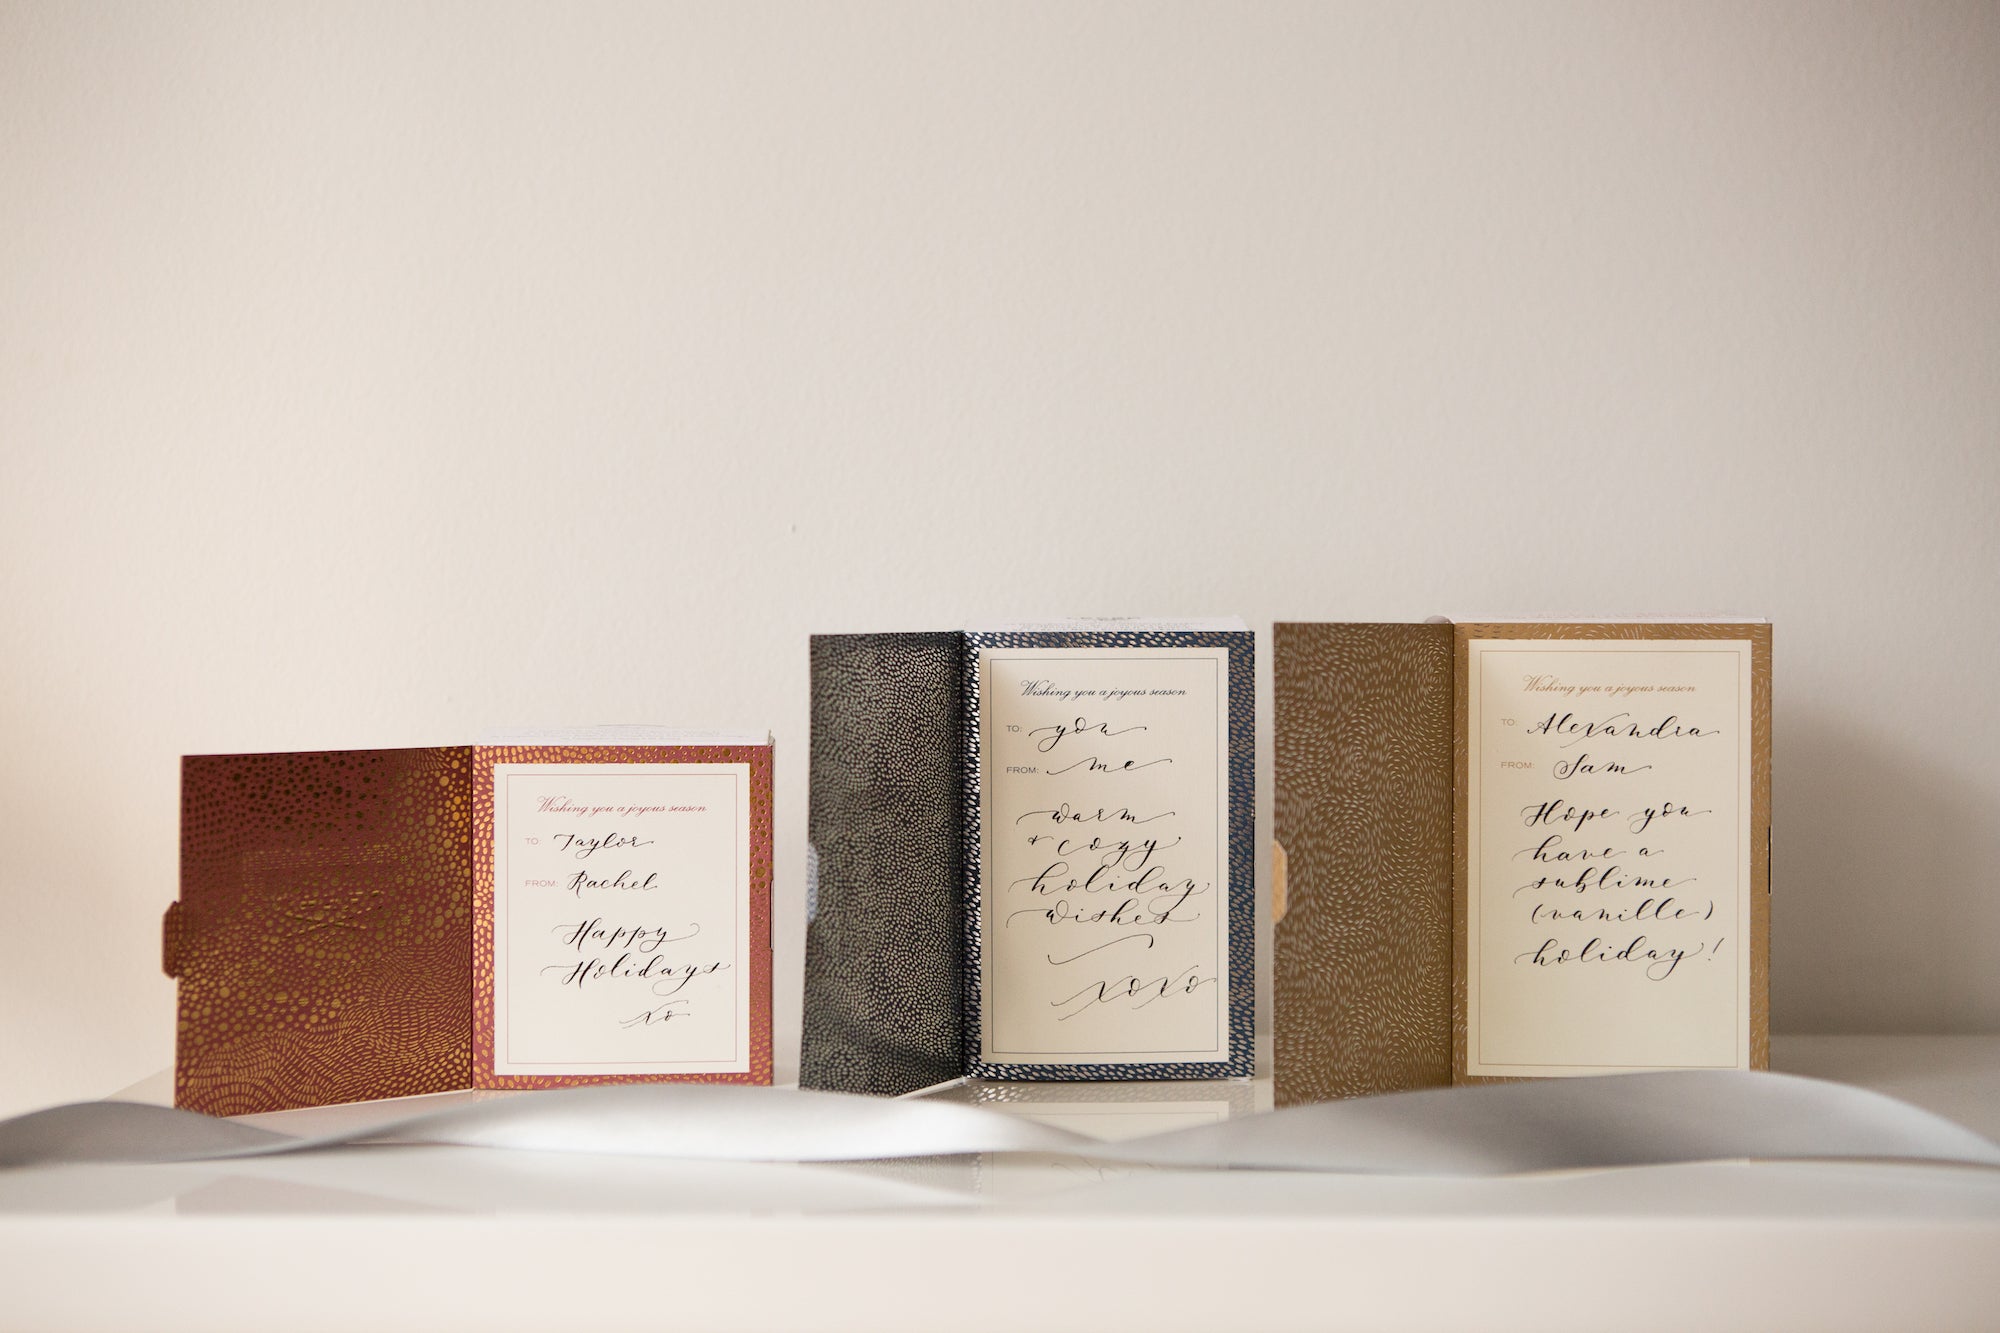 Wishing you a joyous season
TO: Taylor
FROM: Rachel
Happy
Holidays
xo
Wishing you a joyous season
TO: you
FROM: me
warm
+ cozy
holiday
wishes
xoxo
Wishing you a joyous season
TO: Alexandra
FROM: Sam
Hope you
have a
sublime
(vanille)
holiday!